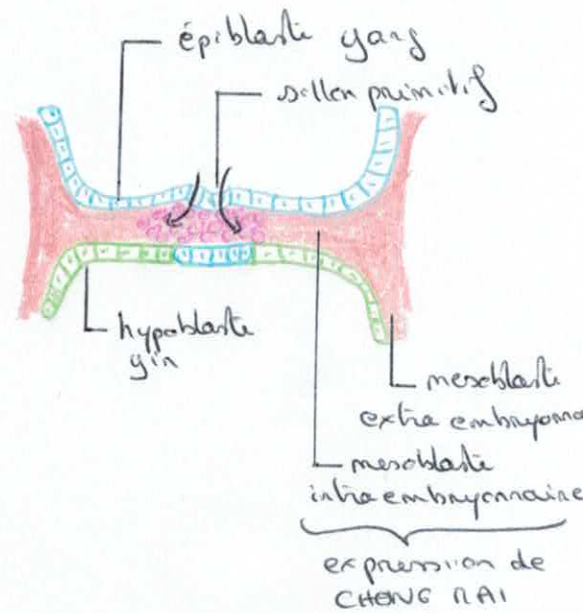 épiblaste yang
sillon primitif
hypoblaste
yin
mesoblaste
extra embryonna
mesoblaste
intra embryonnaire
expression de
CHONG MAI